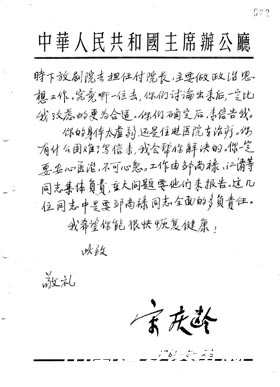 中華人民共和國主席辦公廳
时下放剧院去担任付院长,主要做政治思
想工作。究竟哪一位去,你们讨论出来后,一定比
我考虑的要为合适。你们确定后,来信告我。
你的身体太虚弱,还是住进医院去治疗,你
有什么困难,写信来,我会帮你解决的。你一定
要安心医治,不可心急。工作由邹尚樸、江菌等
同志集体负责,重大问题要他们来报告。这几
位同志中是要邹尚樸同志全面的多负责任。
我希望你能很快恢复健康!
此致
敬礼
宋庆龄